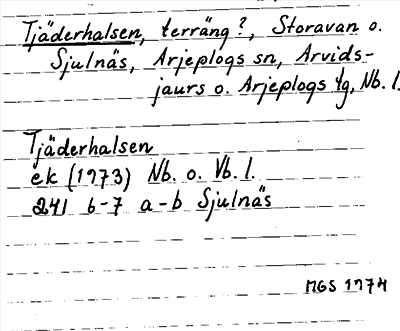 Tjäderhalsen, terräng?, Storavan o.
Sjulnäs, Arjeplogs sn, Arvids-
jaurs o. Arjeplogs tg, Nb. l.
Tjäderhalsen
ek (1973) Nb. o. Vb. l.
241 6-7 a-b Sjulnäs
MGS 1974